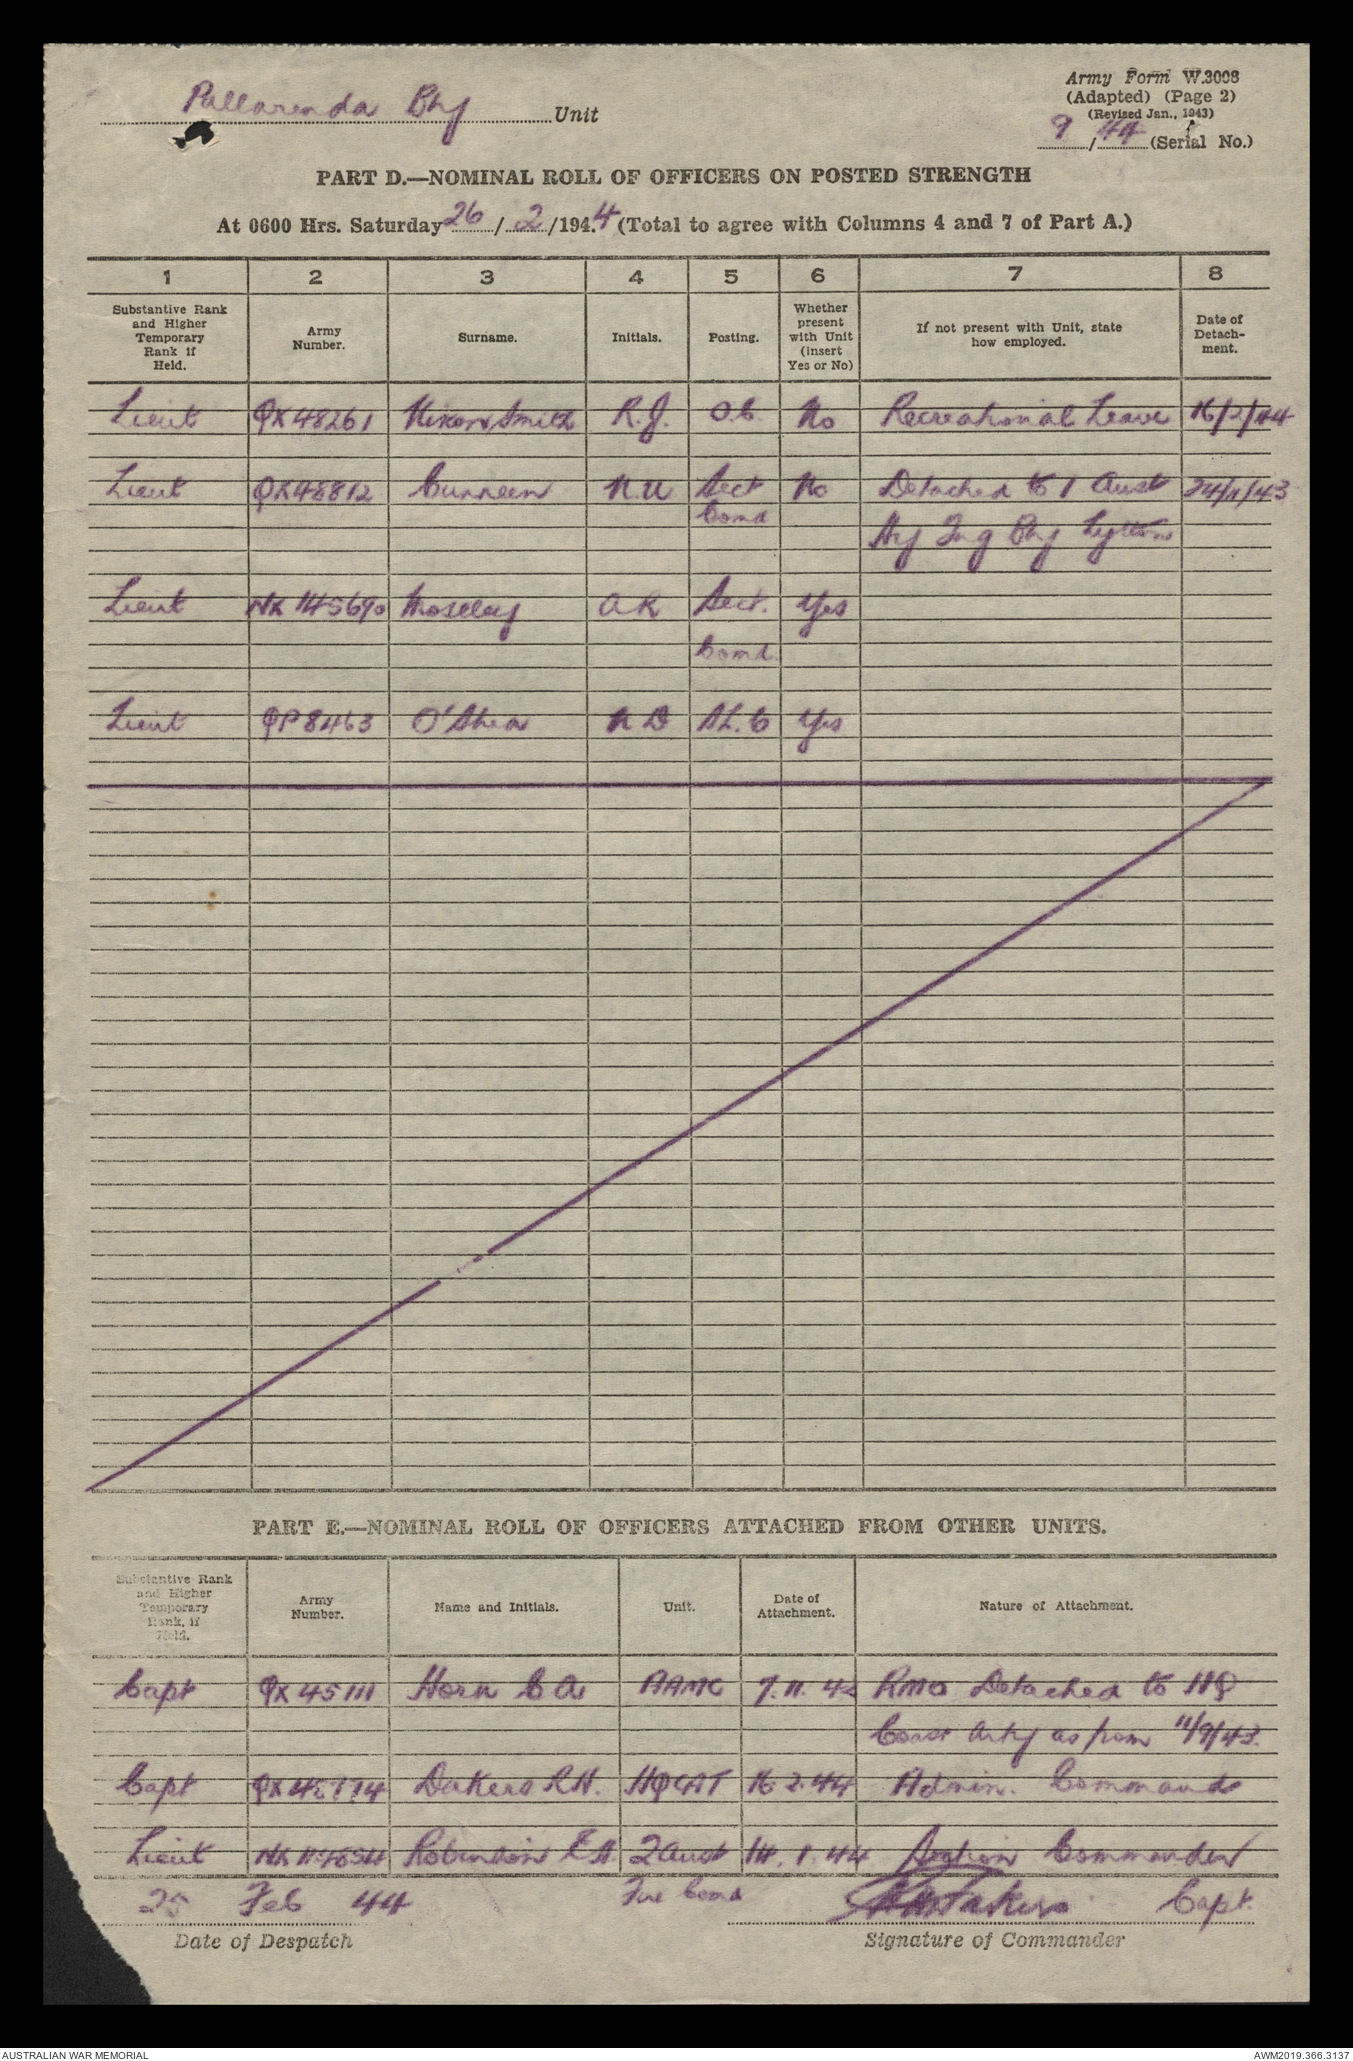 Army Form W.3008
Pallarenda Bty Unit
(Adapted) (Page 2)
(Revised Jan., 1943)
9 / 44 (Serial No.)
PART D.—NOMINAL ROLL OF OFFICERS ON POSTED STRENGTH
At 0600 Hrs. Saturday 26 / 2 /1944 (Total to agree with Columns 4 and 7 of Part A.)
1 2 3 4 5 6 7 8
Substantive Rank and Higher Temporary Rank if Held. Army Number. Surname. Initials. Posting. Whether present with Unit (insert Yes or No) If not present with Unit, state how employed. Date of Detachment.
Lieut QX48261 Nixon Smith R.J. O.C. No Recreational Leave 16/2/44
Lieut QX48812 Cunneen N.U Sect No Detached to 1 Aust 24/11/43
Comd Hy Trg Bty Lytton
Lieut NX145690 Moseley A R Sect. Yes
Comd.
Lieut QP8463 O'Shea N D S.L.C Yes
PART E.—NOMINAL ROLL OF OFFICERS ATTACHED FROM OTHER UNITS.
Substantive Rank and Higher Temporary Rank, if Held. Army Number. Name and Initials. Unit. Date of Attachment. Nature of Attachment.
Capt QX45111 Horn C A AAMC 7.11.42 RMO Detached to HQ
Coast Arty as from 11/9/43.
Capt Dakers R.H. HQCAT 16.2.44 Admin. Command
Lieut Robinson E H 2 Aust 14.1.44 Section Commander
25 Feb 44 Fire Comd RH Dakers Capt.
Date of Despatch Signature of Commander
AUSTRALIAN WAR MEMORIAL AWM2019.366.3137